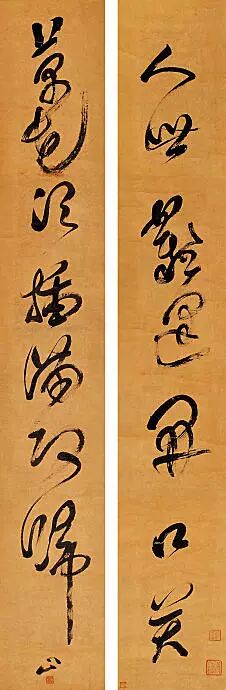 人世難逢開口笑
菊花須插滿頭歸
山